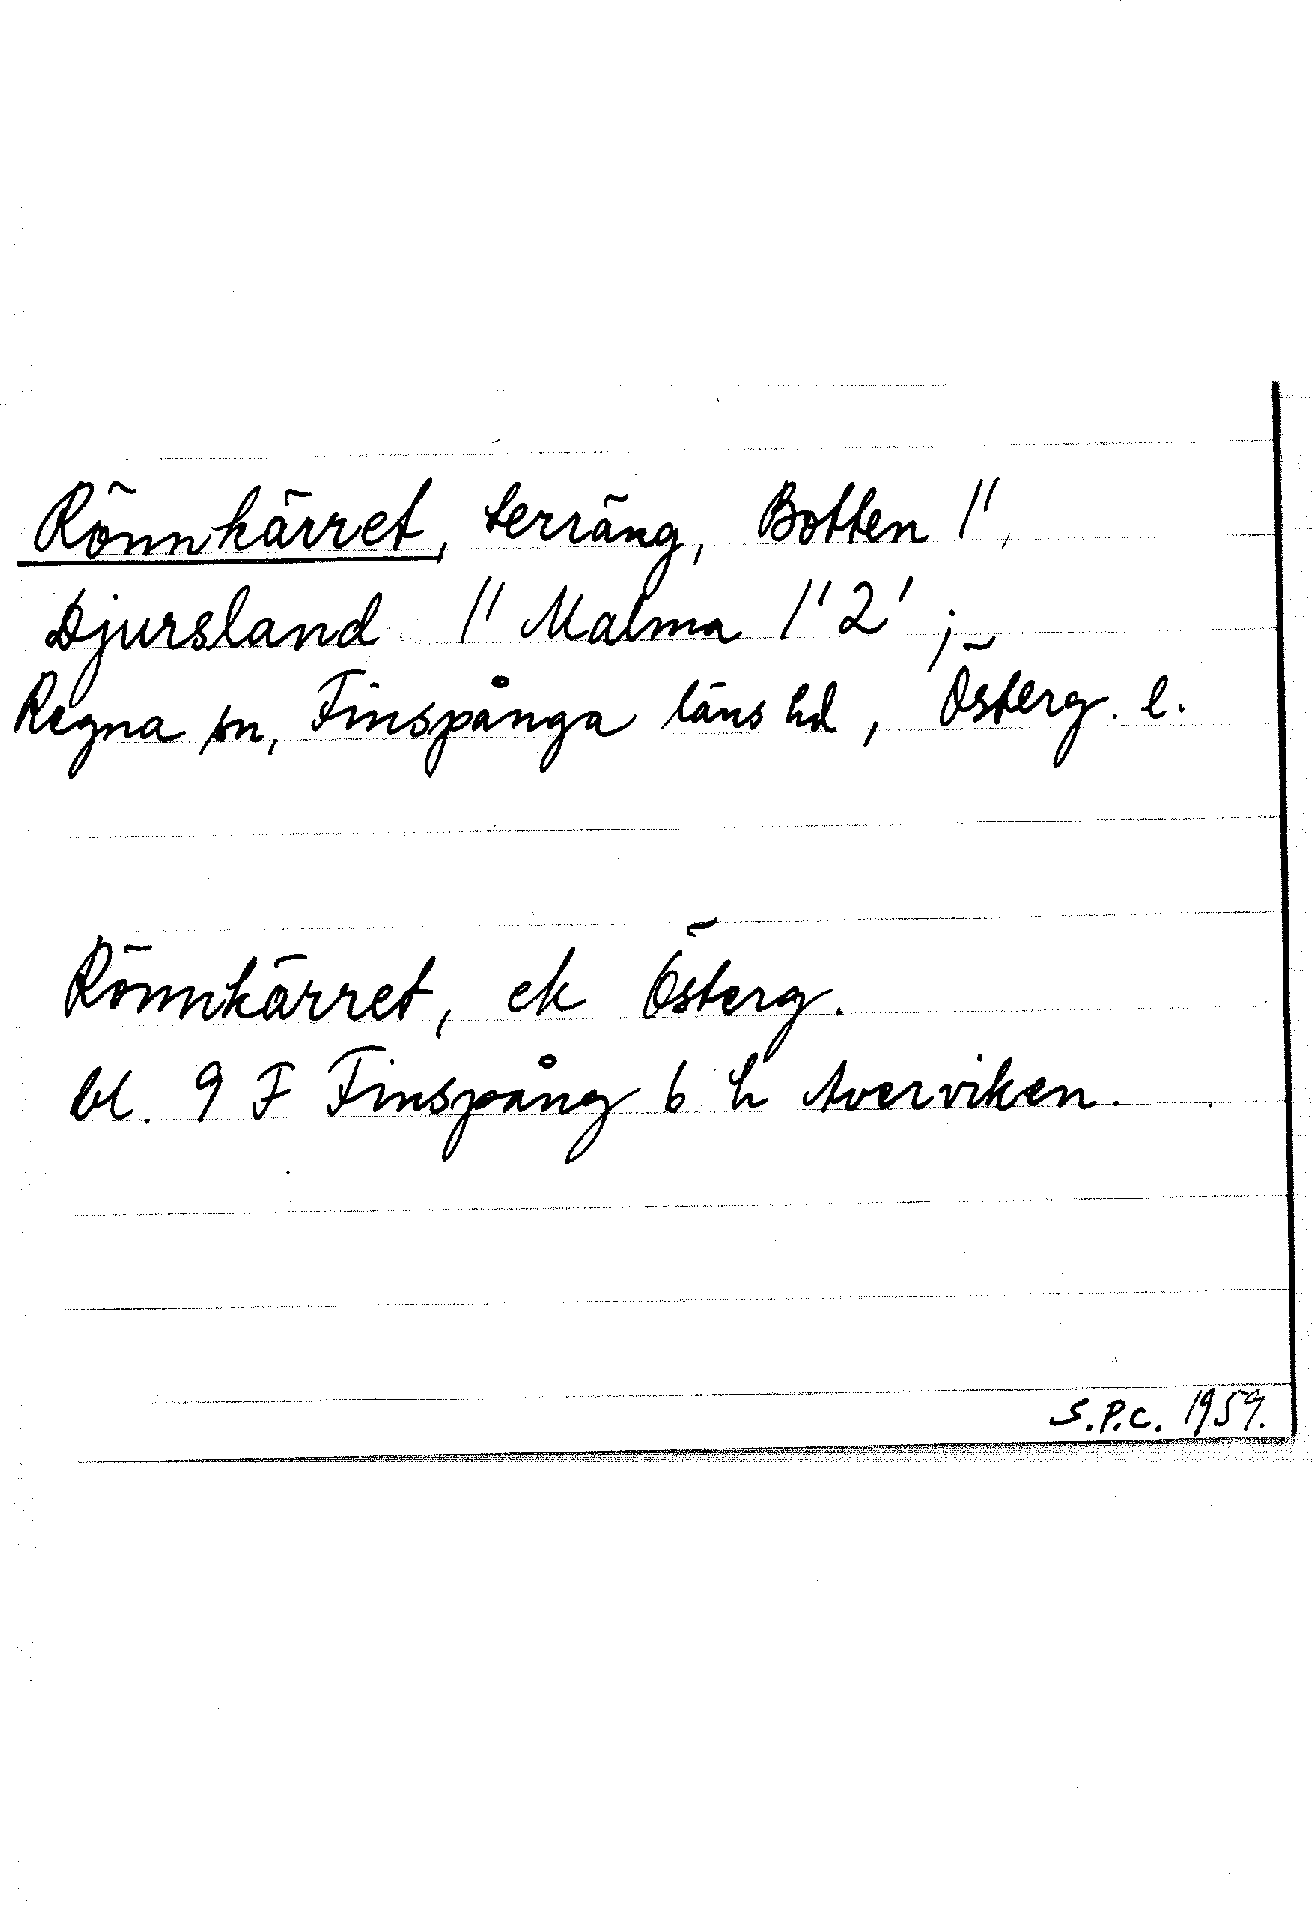 Rönnkärret, terräng, Botten 1',
Djursland 1' Malma 1'2';
Regna sn, Finspånga läns hd, Österg. l.
Rönnkärret, ek Österg.
bl. 9 F Finspång 6 h Averviken.
S.P.C. 1959.